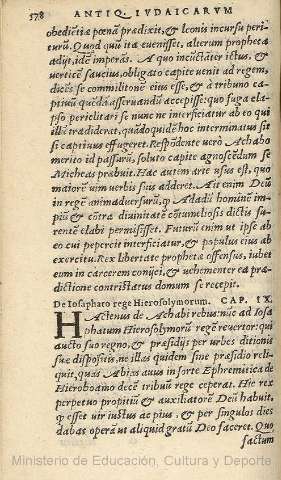 578 ANTIQ. IVDAICARVM
obediẽtia pœnã prædixit, & leonis incursu peri-
turũ. Quod quũ ita evenisset, alterum propheta
adijt, idẽ imperãs. A quo incũctãter ictus, &
verticẽ saucius, obligato capite venit ad regem,
dicẽs se commilitonẽ eius esse, & à tribuno ca-
ptiuũ quẽdã asseruandũ accepisse: quo fuga ela-
pso periclitari se nunc ne interficiatur ab eo qui
illũ tradiderat, quãdoquidẽ hoc interminatus sit
si captiuus effugeret. Respondẽte verò Achabo
merito id passurũ, soluto capite agnoscẽdum se
Micheas præbuit. Hac autem arte vsus est, quo
maiorẽ vim verbis suis adderet. Ait enim Deũ
in regẽ animaduersurũ, q Adadũ hominẽ im-
piũ & cõtra diuinitatẽ cõtumeliosis dictis fu-
rentẽ elabi permisisset. Futurũ enim vt ipse ab
eo cui pepercit interficiatur, & populus eius ab
exercitu. Rex libertate prophetæ offensus, iubet
eum in carcerem conijci, & vehementer ea præ-
dictione contristatus domum se recepit.
De Iosaphato rege Hierosolymorum. CAP. IX.
HActenus de Achabi rebus: nũc ad Iosa
phatum Hierosolymorũ regẽ revertor: qui
aucto suo regno, & præsidijs per urbes ditionis
suæ dispositis, ne illas quidem sine præsidio reli-
quit, quas Abias auus in sorte Ephremitica de
Hieroboamo decẽ tribuũ rege ceperat. Hic rex
perpetuo propitiũ & auxiliatorẽ Deũ habuit,
q esset vir iustus ac pius, & per singulos dies
dabat operã ut aliquid gratũ Deo faceret. Quo
factum
Ministerio de Educación, Cultura y Deporte